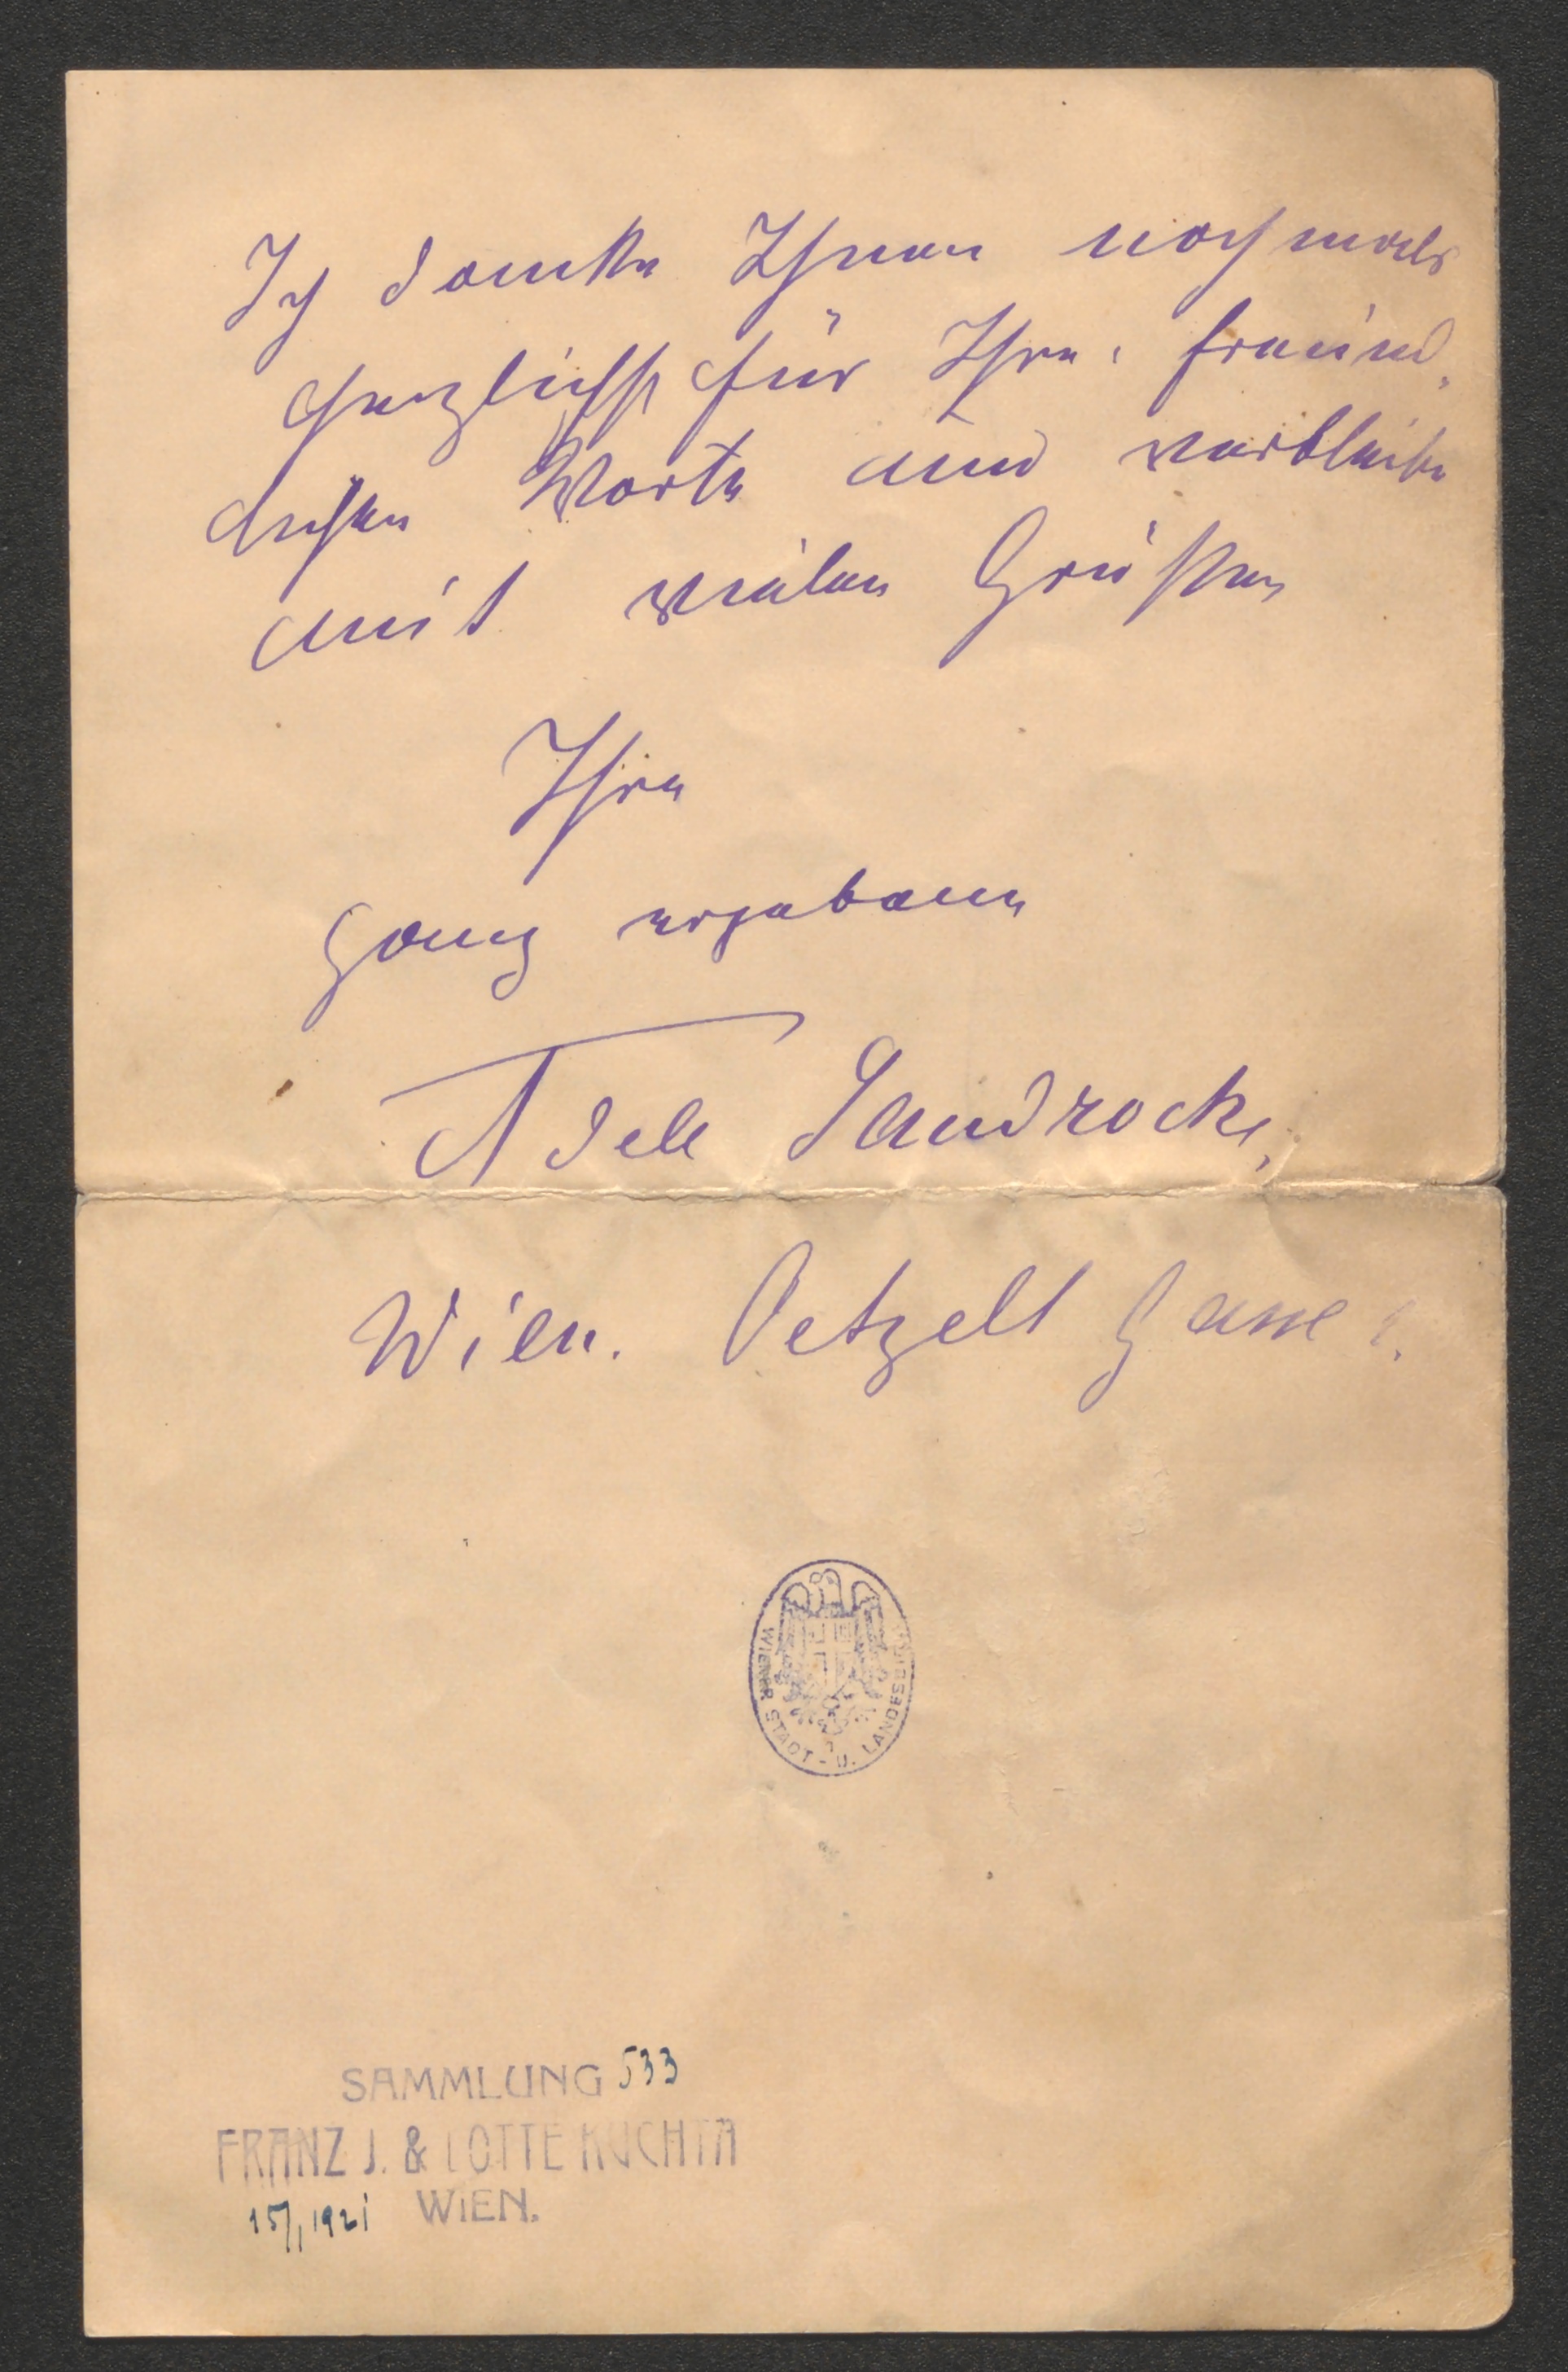 Ich danke Ihnen nochmals
herzlichst für Ihre freund,
lichen Worte und verbleibe
mit vielen Grüßen
Ihre
ganz ergebene
Adele Sandrock,
Wien. Oetzelt Gasse 1.
WIENER STADT - U. LANDESBIBL
SAMMLUNG 533
FRANZ J. & LOTTE KUCHTA
15/1 1921 WIEN.